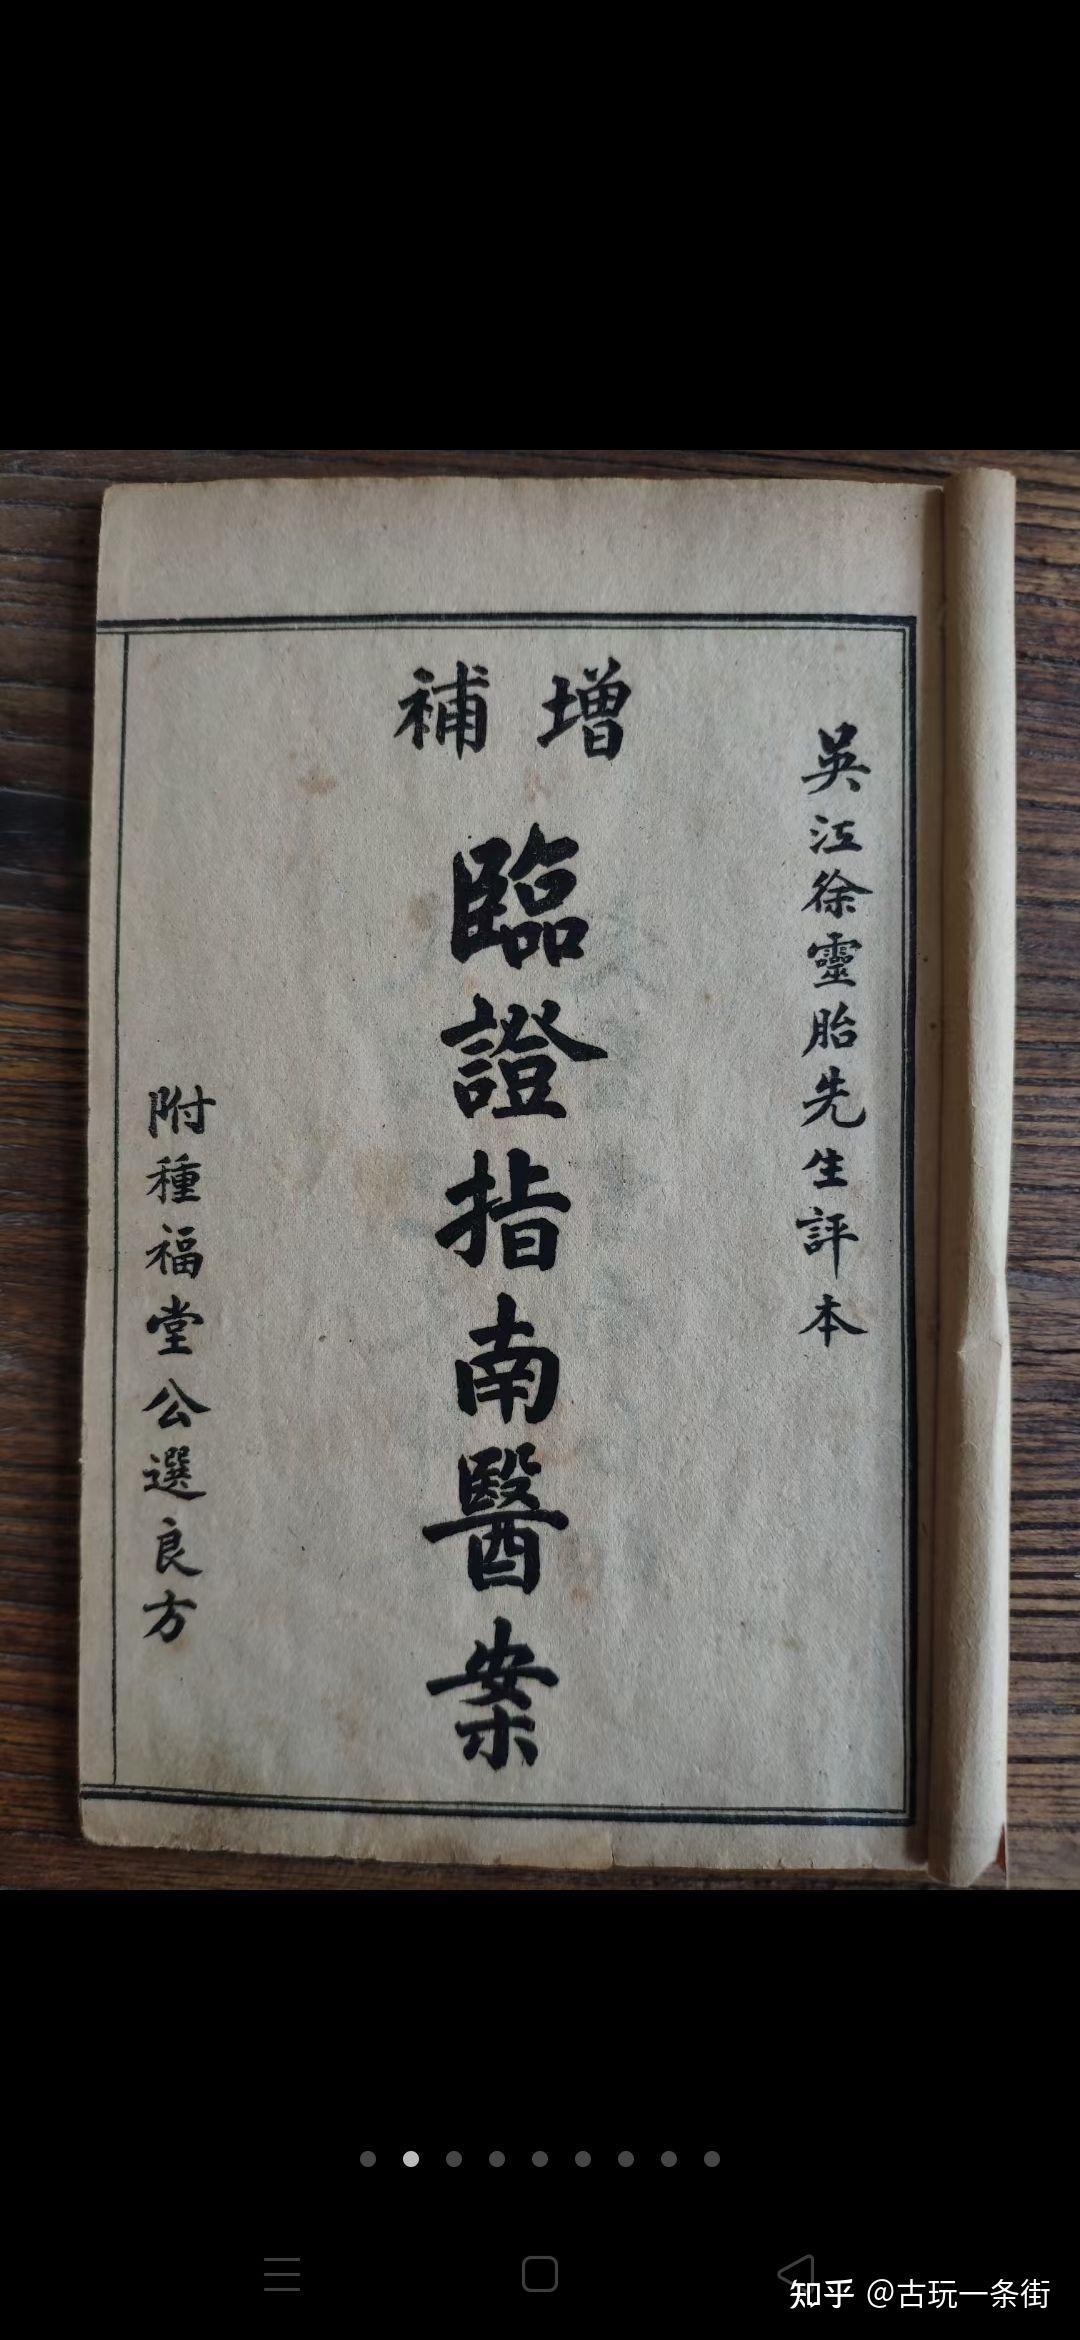 吳江徐靈胎先生評本
增補
臨證指南醫案
附種福堂公選良方
知乎 @古玩一条街